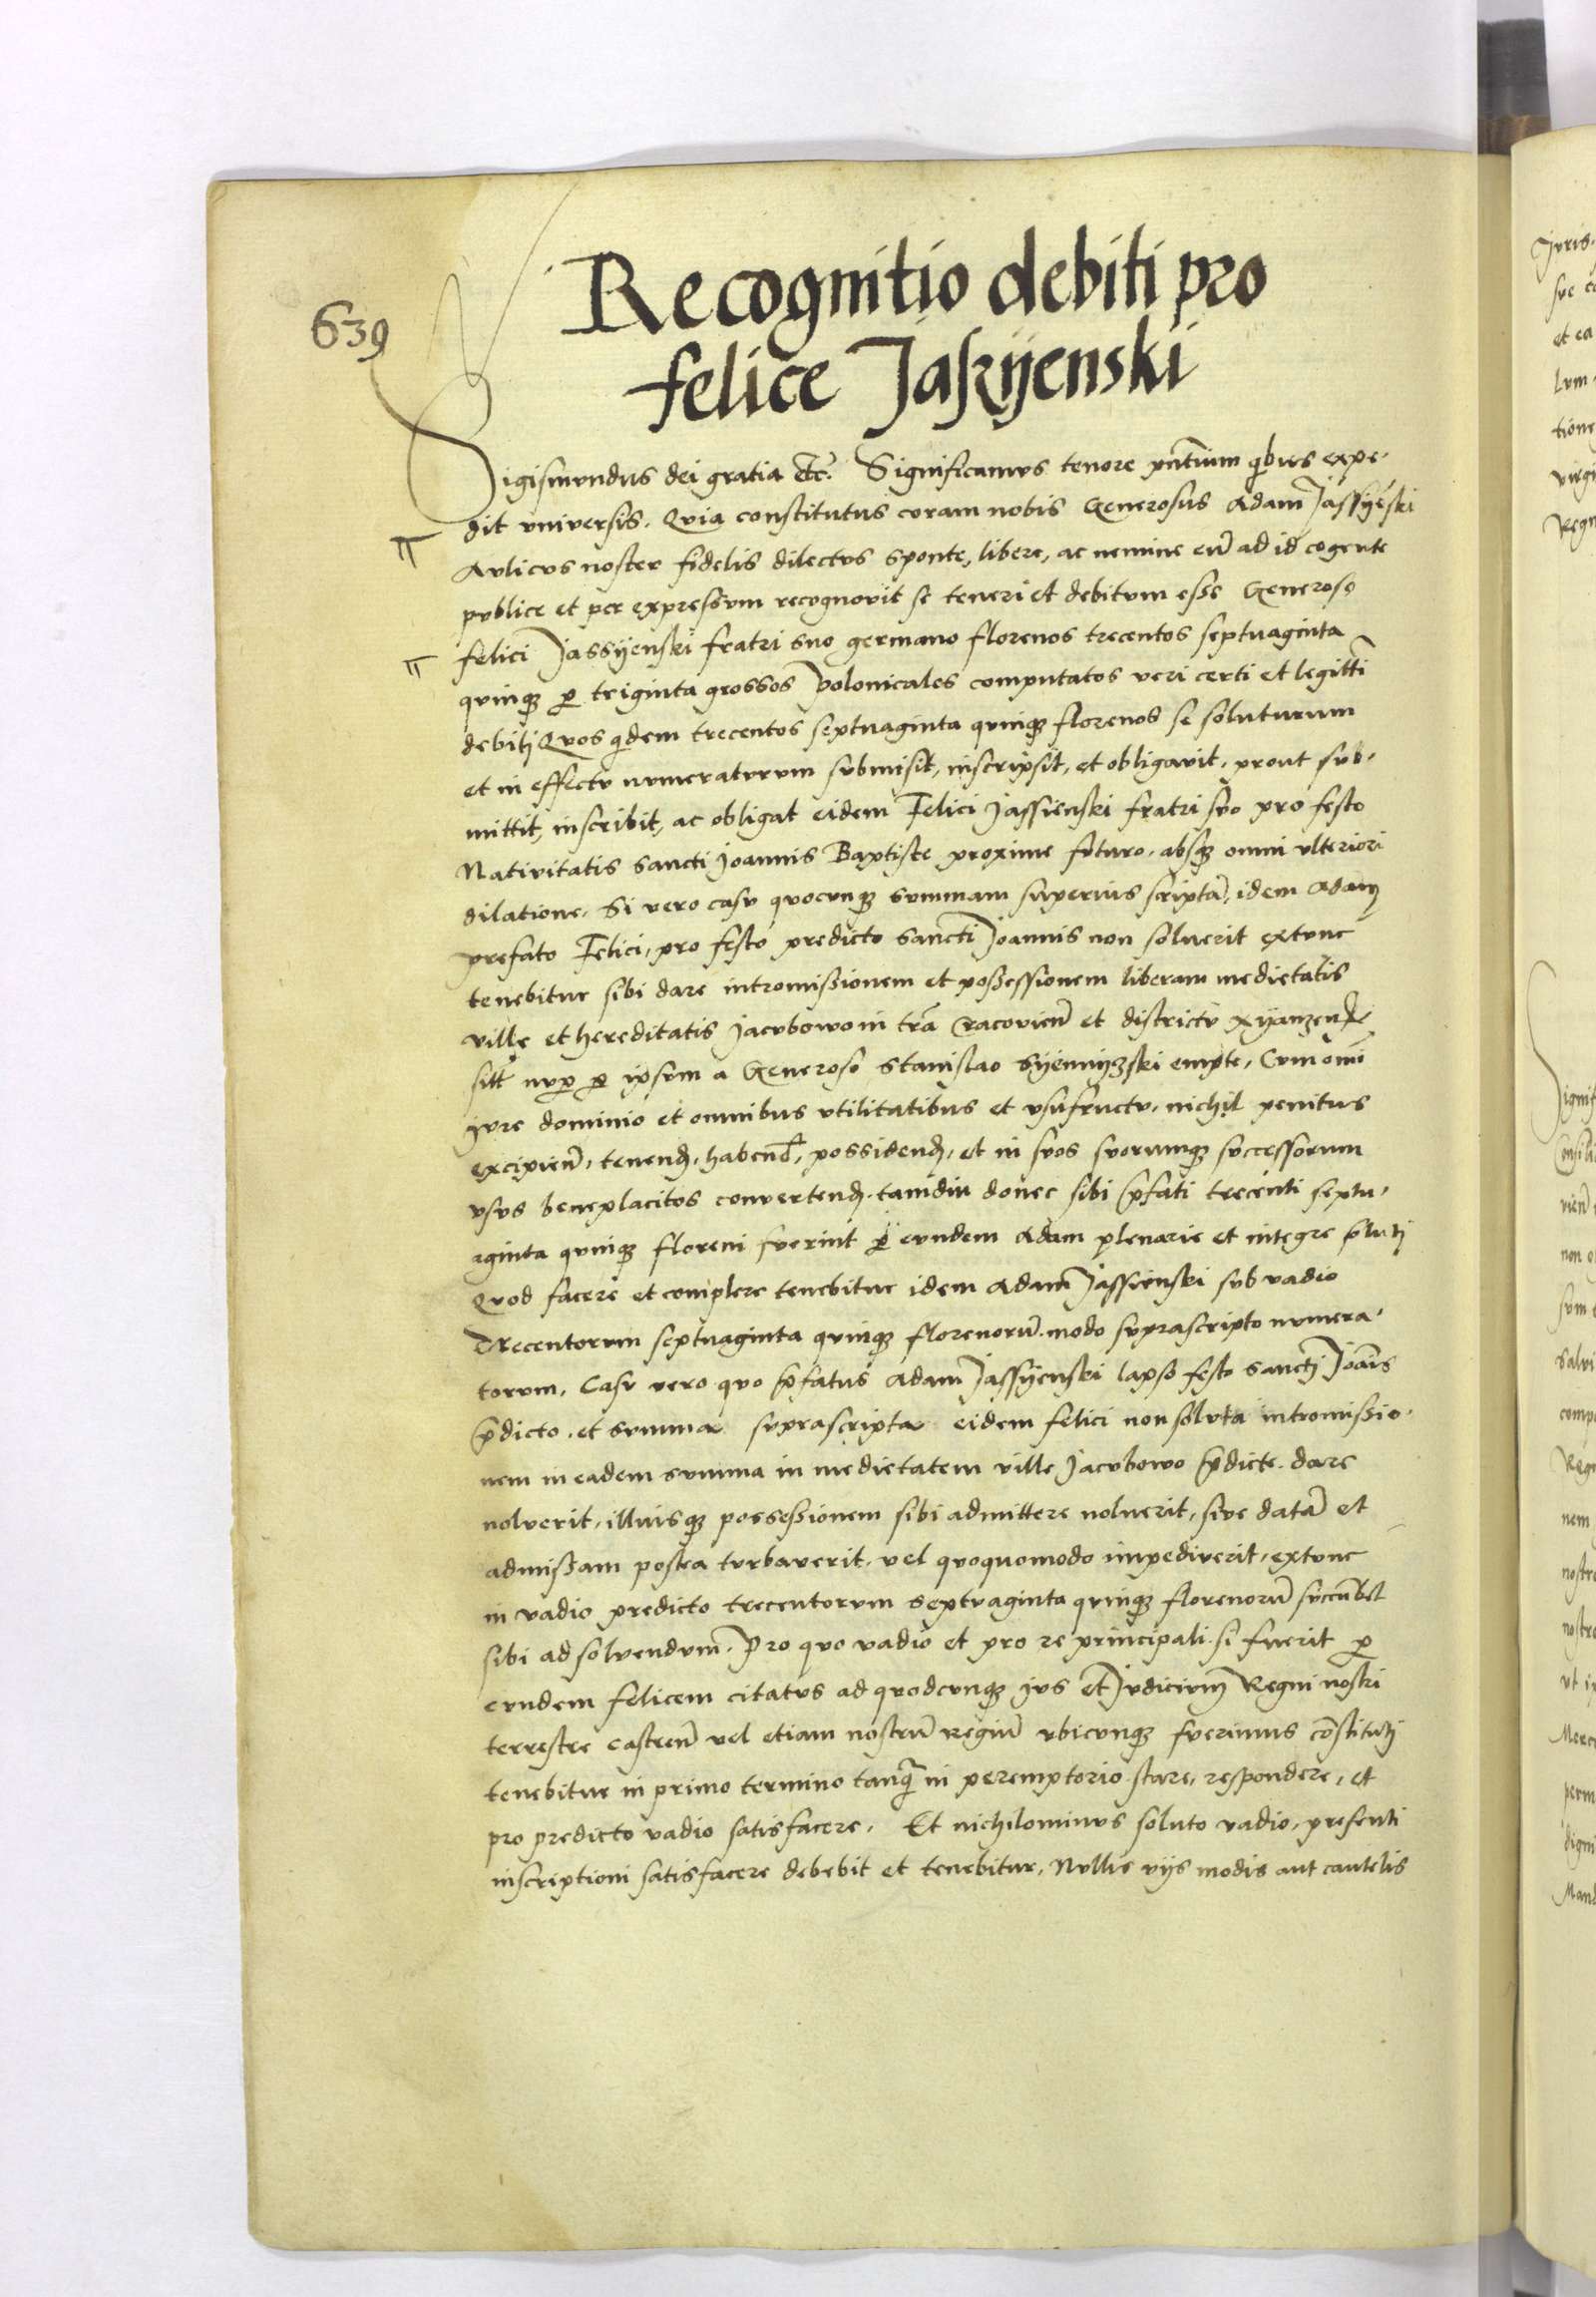 639
Recognitio debiti pro
felice Jaſzyenski
Sigismundus dei gratia etc. Significamus tenore pñtium qibus expe-
dit vniversis. Qvia constitutus coram nobis Generosus Adam Jassyēski
Avlicvs noster fidelis dilectvs sponte, libere, ac nemine eū ad id cogente
pvblice et per expressvm recognovit se teneri et debitvm esse Generoso
felici Jassyenski fratri suo germano florenos trecentos septuaginta
qvinqȝ ꝑ triginta grossos polonicales computatos veri certi et legittī
debitj Qvos qdem trecentos septuaginta qvinqȝ florenos se soluturum
et in effectv nvmeratvrvm svbmisit, inscripsit, et obligavit, prout svb-
mittit, inscribit, ac obligat eidem Felici Jassienski fratri svo pro festo
Nativitatis sancti Joannis Baptiste proxime fvturo, absqȝ omni vlteriori
dilatione. Si vero casv qvocvnqȝ svmmam superius scriptā, idem Adam
prefato Felici, pro festo predicto sancti Joannis non solverit extvnc
tenebitur sibi dare intromissionem et possessionem liberam medietatis
ville et hereditatis Jacvbowo in trā Cracovieñ et districtv Xyanzeñ
sitt nvꝑ ꝑ ipsvm a Generoso Stanislao Syennyȝski empte, Cvm omī
jvre dominio et omnibus vtilitatibus et vsufructv, nichil penitus
excipieñ, tenenđ, habenđ, possidenđ, et in svos svorumqȝ svccessorum
vsvs beneplacitos convertenđ, tamdiu donec sibi p̄fati trecenti septu-
aginta qvinqȝ floreni fverint ꝑ evndem Adam plenarie et integre solutj
Qvod facere et complere tenebitur idem Adam Jassienski svb vadio
Trecentorvm septuaginta qvinqȝ florenorū modo svprascripto nvmera-
torvm. Casv vero qvo p̄fatus Adam Jassyenski lapso festo sanctj Joāis
p̄dicto, et svmma svprascripta eidem felici non solvta intromissio-
nem in eadem svmma in medietatem ville Jacvbowo p̄dicte dare
nolverit, illivsqȝ possessionem sibi admittere nolverit, sive datā et
admissam postea tvrbaverit, vel qvoquomodo impediverit, extvnc
in vadio predicto trecentorvm septvaginta qvinqȝ florenorū svccūbet
sibi ad solvendvm. Pro qvo vadio et pro re principali si fverit ꝑ
evndem felicem citatvs ad qvodcvnqȝ jvs et Jvdicivm Regni nostri
terrestre castreñ vel etiam nostrū regiū vbicvnqȝ fverimus cōstitutj
tenebitur in primo termino tanqā in peremptorio stare, respondere, et
pro predicto vadio satisfacere. Et nichilominvs soluto vadio, presenti
inscriptioni satisfacere debebit et tenebitur, Nvllis vijs modis aut cautelis